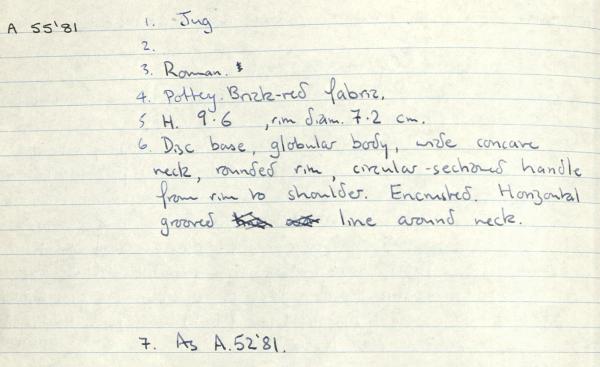 A 55'81
1. Jug
2.
3. Roman.
4. Pottey. Brick-red fabric.
5 H. 9.6 , rim diam. 7.2 cm.
6. Disc base, globular body, wide concave
neck, rounded rim, circular-sectioned handle
from rim to shoulder. Encrusted. Horizontal
grooved line around neck.
7. As A.52'81.